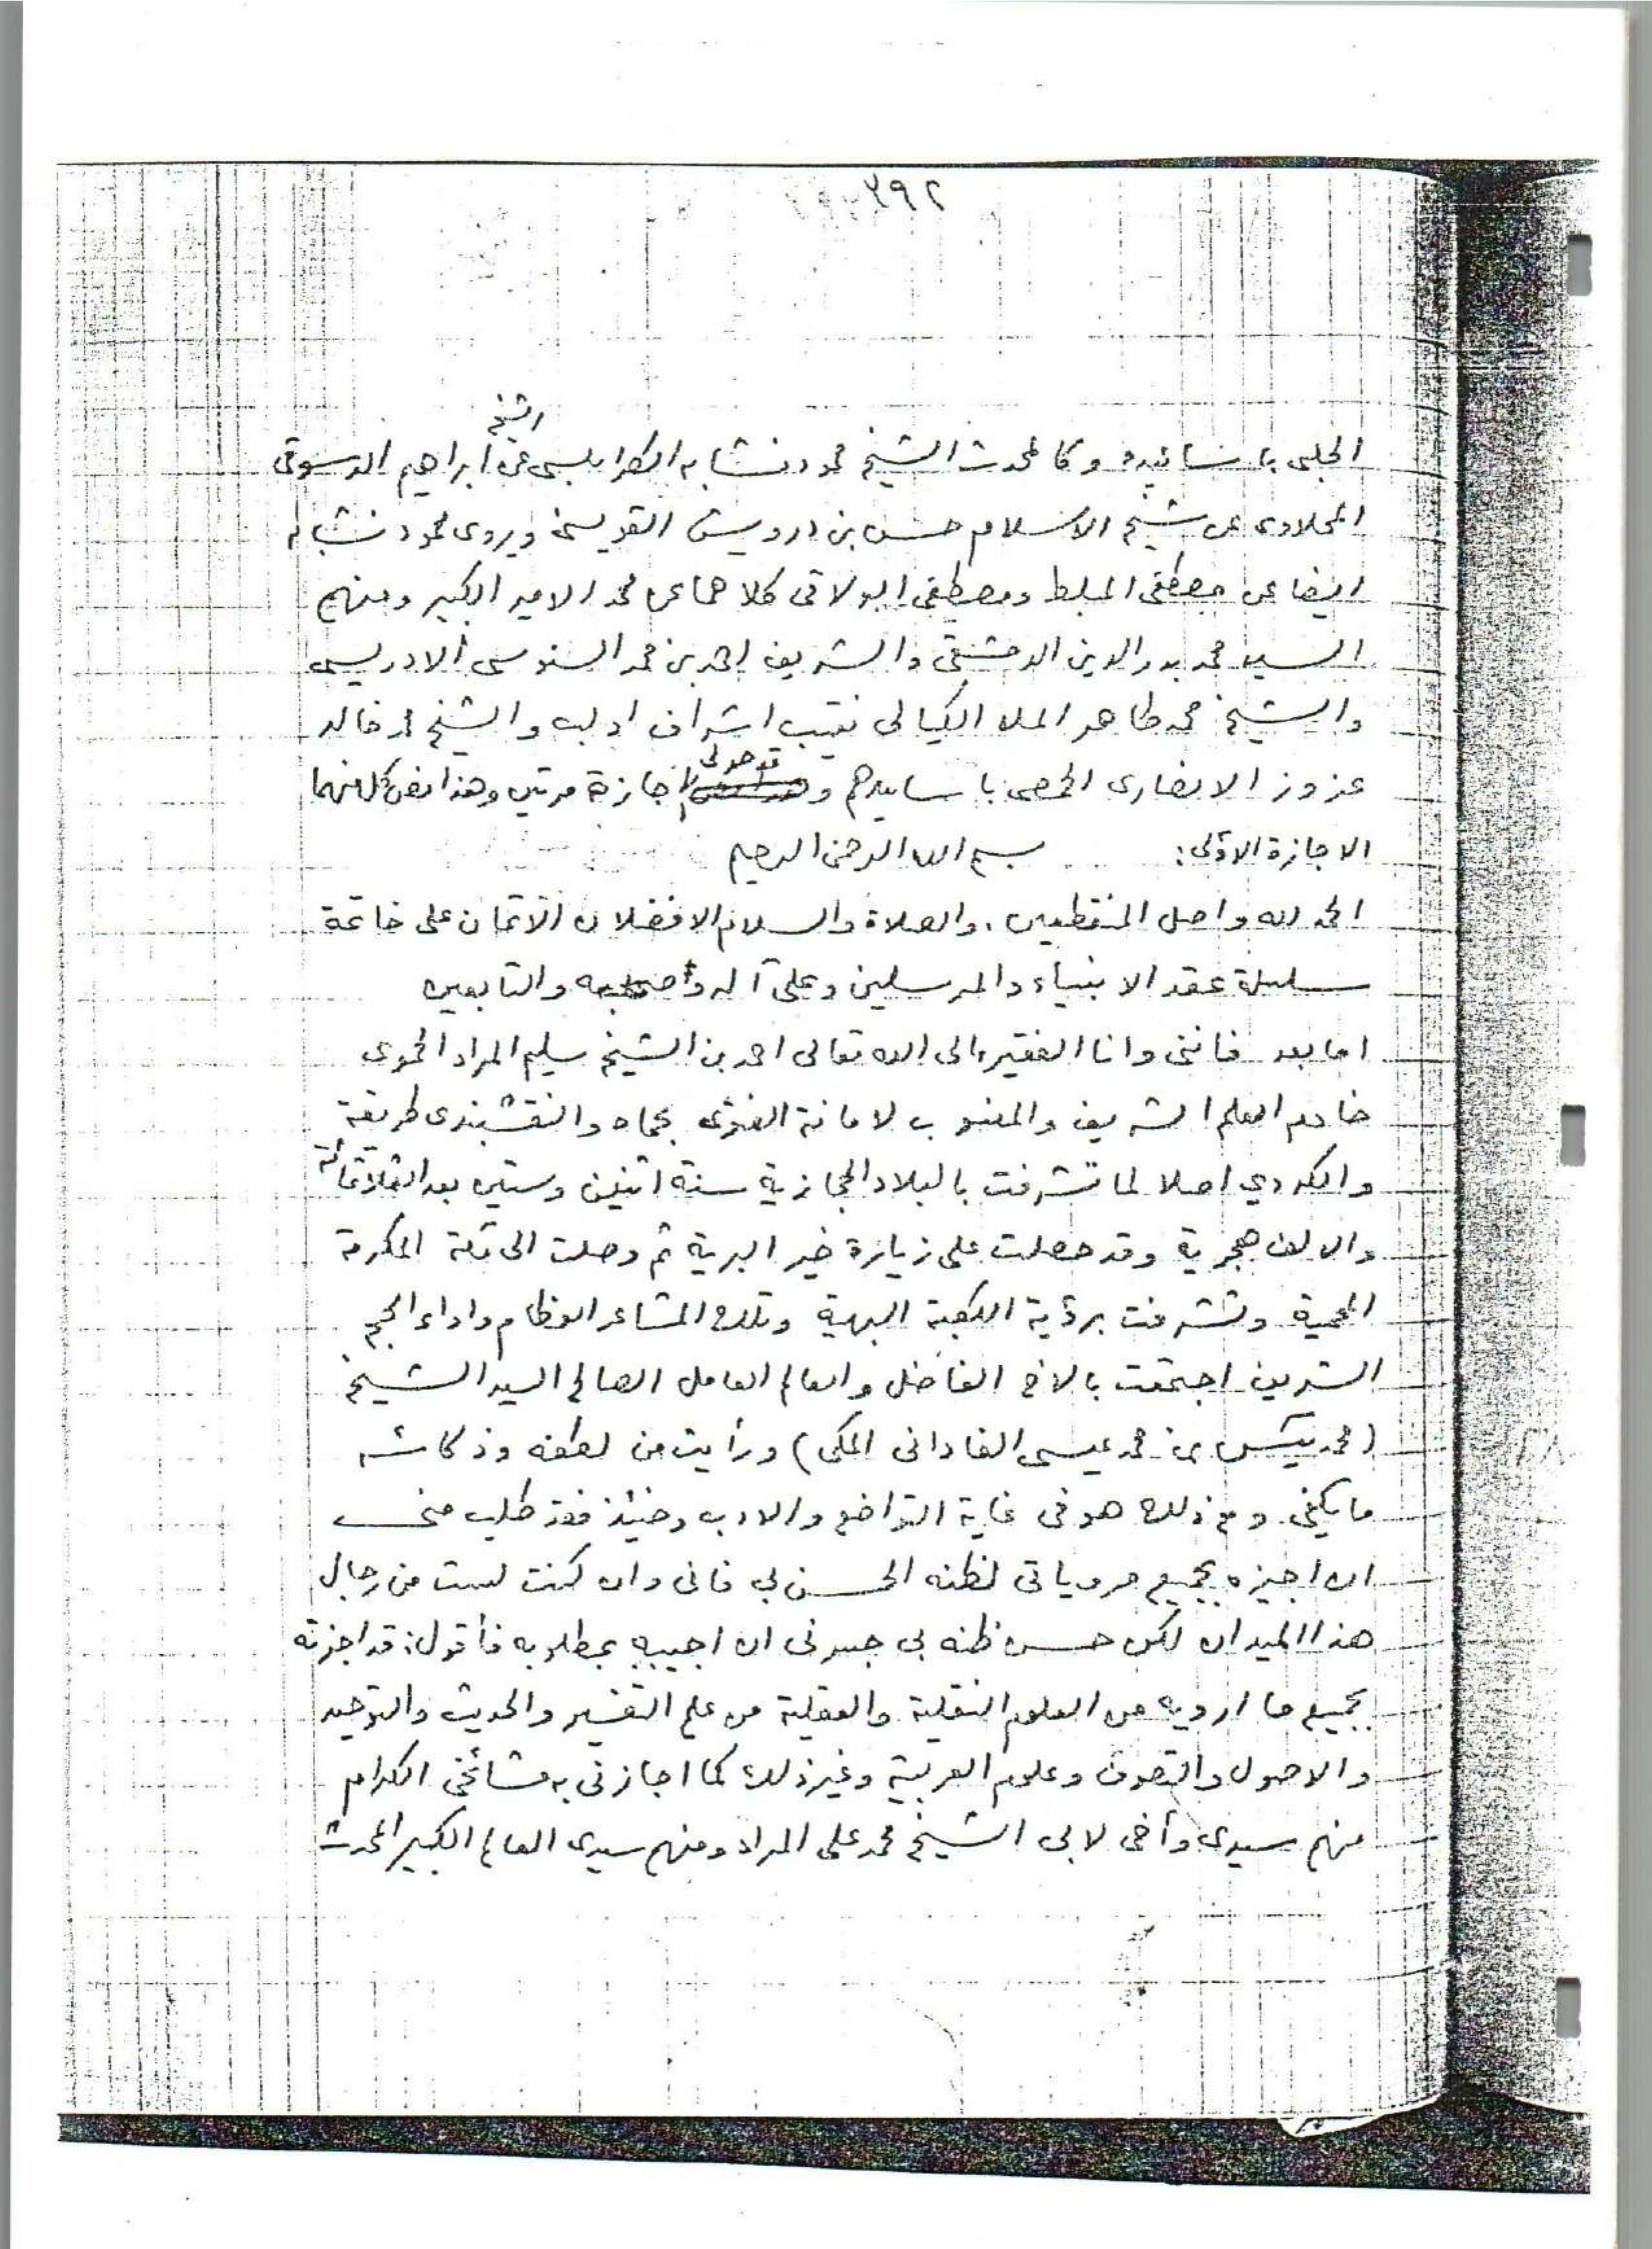 ٢٩٢
الشيخ
الحلبى باسانيده وكالمحدث الشيخ محمود نشابه الطرابلسى عن ابراهيم الدسوقى
المحلاوى عن شيخ الاسلام حسن بن درويش القويسنى ويروى محمود نشابه
ايضا عن مصطفى المبلط ومصطفى البولاقى كلاهما عن محمد الامير الكبير ومنهم
السيد محمد بدر الدين الدمشقى والشريف احمد بن محمد السنوسى الادريسى
والشيخ محمد طاهر الملا الكيالى نقيب اشراف ادلب والشيخ محمد خالد
عزوز الانصارى الحمصى باسانيدهم و اجازة مرتين وهذا نص كل منهما
الاجازة الاولى: بسم الله الرحمن الرحيم
الحمد لله واصل المنقطعين. والصلاة والسلام الافضلان الاتمان على خاتمة
سلسلة عقد الانبياء والمرسلين وعلى آله وأصحابه والتابعين
اما بعد فاننى وانا الفقير الى الله تعالى احمد بن الشيخ سليم المراد الحموى
خادم العلم الشريف والمنسوب لامانة الفتوى بحماه والنقشبندى طريقة
والكردي اصلا لما تشرفت بالبلاد الحجازية سنة اثنين وستين بعد الثلاثمائة
والالف هجرية وقد حصلت على زيارة خير البرية ثم وصلت الى مكة المكرمة
المحمية وتشرفت برؤية الكعبة البهية وتلك المشاعر العظام واداء الحج
الشريف اجتمعت بالاخ الفاضل والعالم العامل الصالح السيد الشيخ
(محمد يس بن محمد عيسى الفادانى المكى) ورأيت من لطفه وذكائه
ما يكفى ومع ذلك هو فى غاية التواضع والادب وحينئذ فقد طلب منى
ان اجيزه بجميع مروياتى لظنه الحسن بي فانى وان كنت لست من رجال
هذا الميدان لكن حسن ظنه بى جسرنى ان اجيبه بمطلوبه فأقول: قد اجزته
بجميع ما ارويه من العلوم النقلية والعقلية من علم التفسير والحديث والتوحيد
والاصول والتصوف وعلوم العربية وغير ذلك كما اجازنى به مشائخى الكرام
منهم سيدى وأخى لابى الشيخ محمد على المراد ومنهم سيدى العالم الكبير المحدث